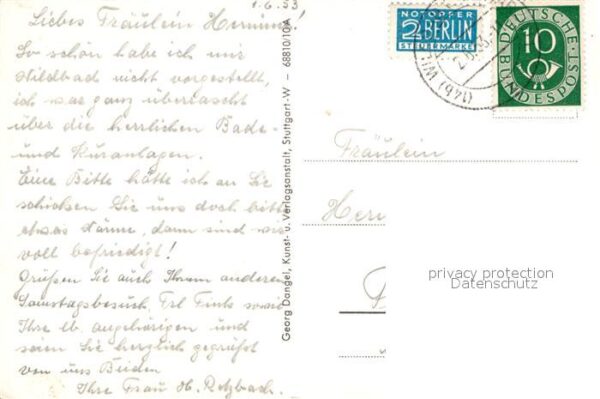 1.6.53
Liebes Fräulein Hermine!
So schön habe ich mir
Wildbad nicht vorgestellt,
ich war ganz überrascht
über die herrlichen Bade-
und Kuranlagen.
Eine Bitte hätte ich an Sie
schicken Sie uns doch bitte
etwas Wärme, dann sind wir
voll befriedigt!
Grüßen Sie auch Ihren anderen
Samstagsbesuch, Frl. Fink sowie
Ihre lb. Angehörigen und
seien Sie herzlich gegrüßt
von uns Beiden
Ihre Frau
Georg Dangel, Kunst- u. Verlagsanstalt, Stuttgart-W - 68810/10A
NOTOPFER
2 BERLIN
STEUERMARKE
DEUTSCHE
10
BUNDESPOST
(14b) WIL
Fräulein
Herm
privacy protection
Datenschutz